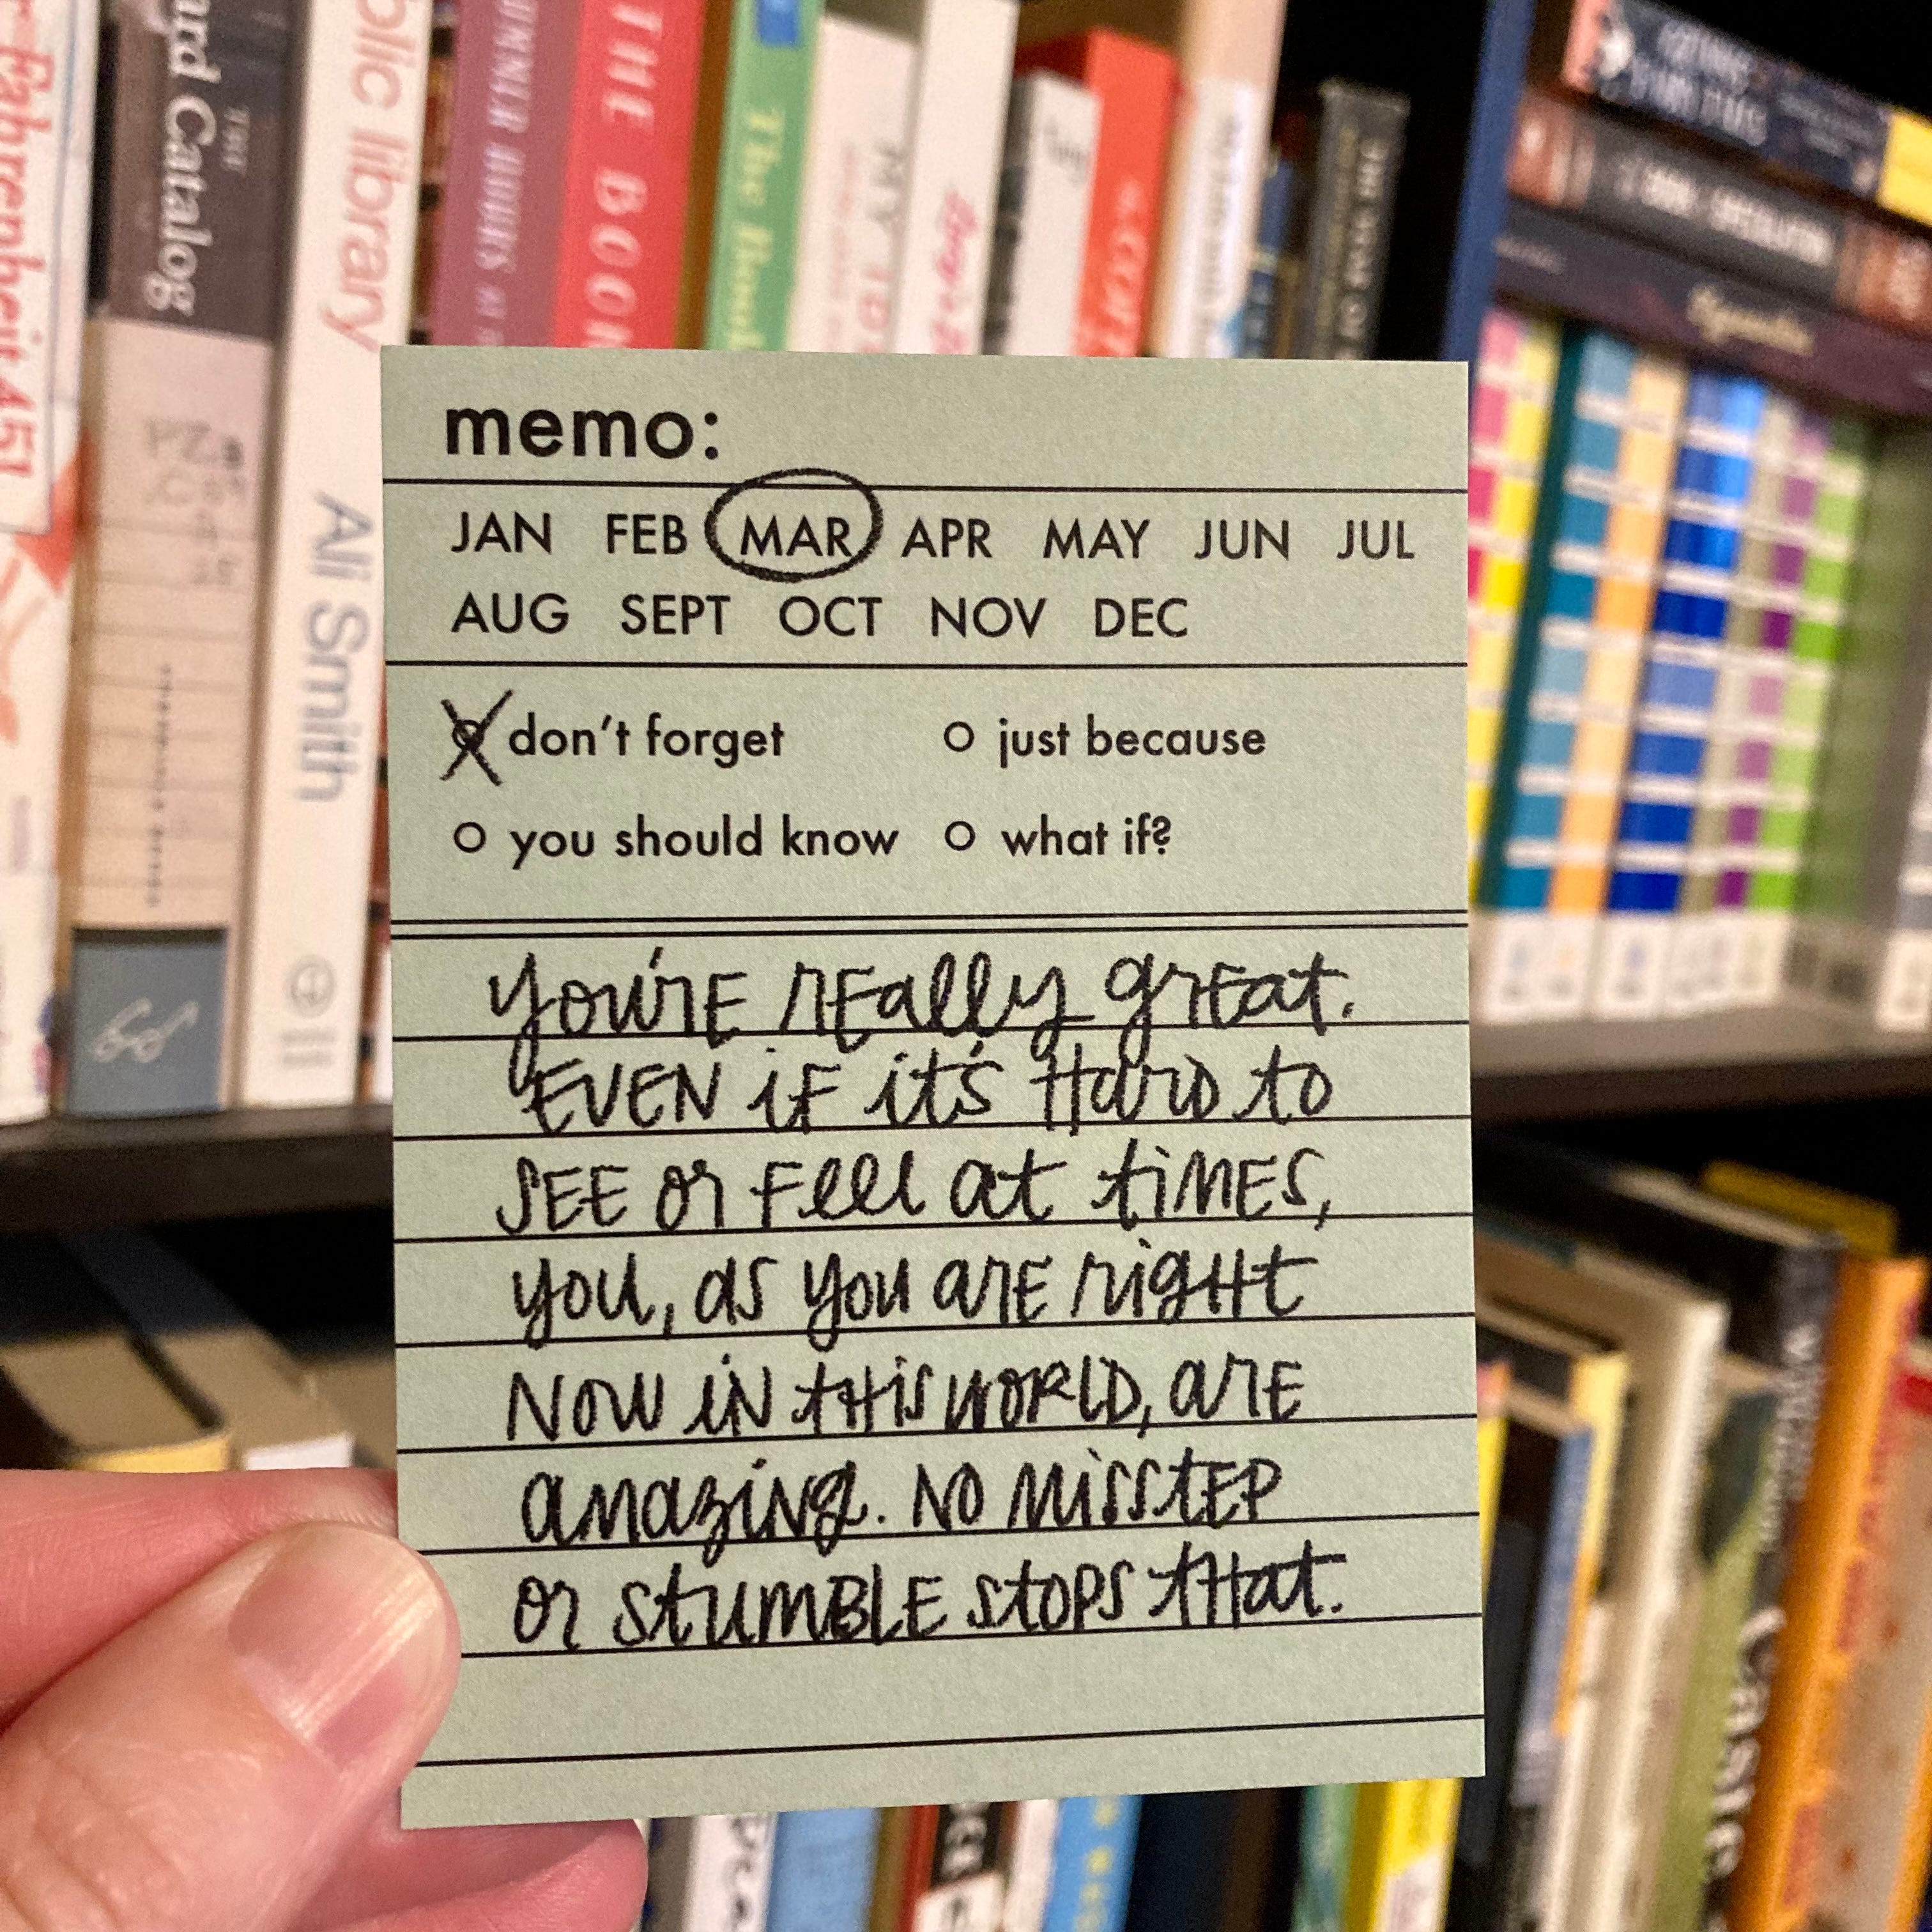 Fahrenheit 451
THE
ard Catalog
blic library
Ali Smith
THE BOOK
The Book
memo:
JAN FEB MAR APR MAY JUN JUL
AUG SEPT OCT NOV DEC
don't forget
just because
you should know
what if?
You're really great.
Even if it's hard to
see or feel at times,
you, as you are right
now in this world, are
amazing. No misstep
or stumble stops that.
Castle